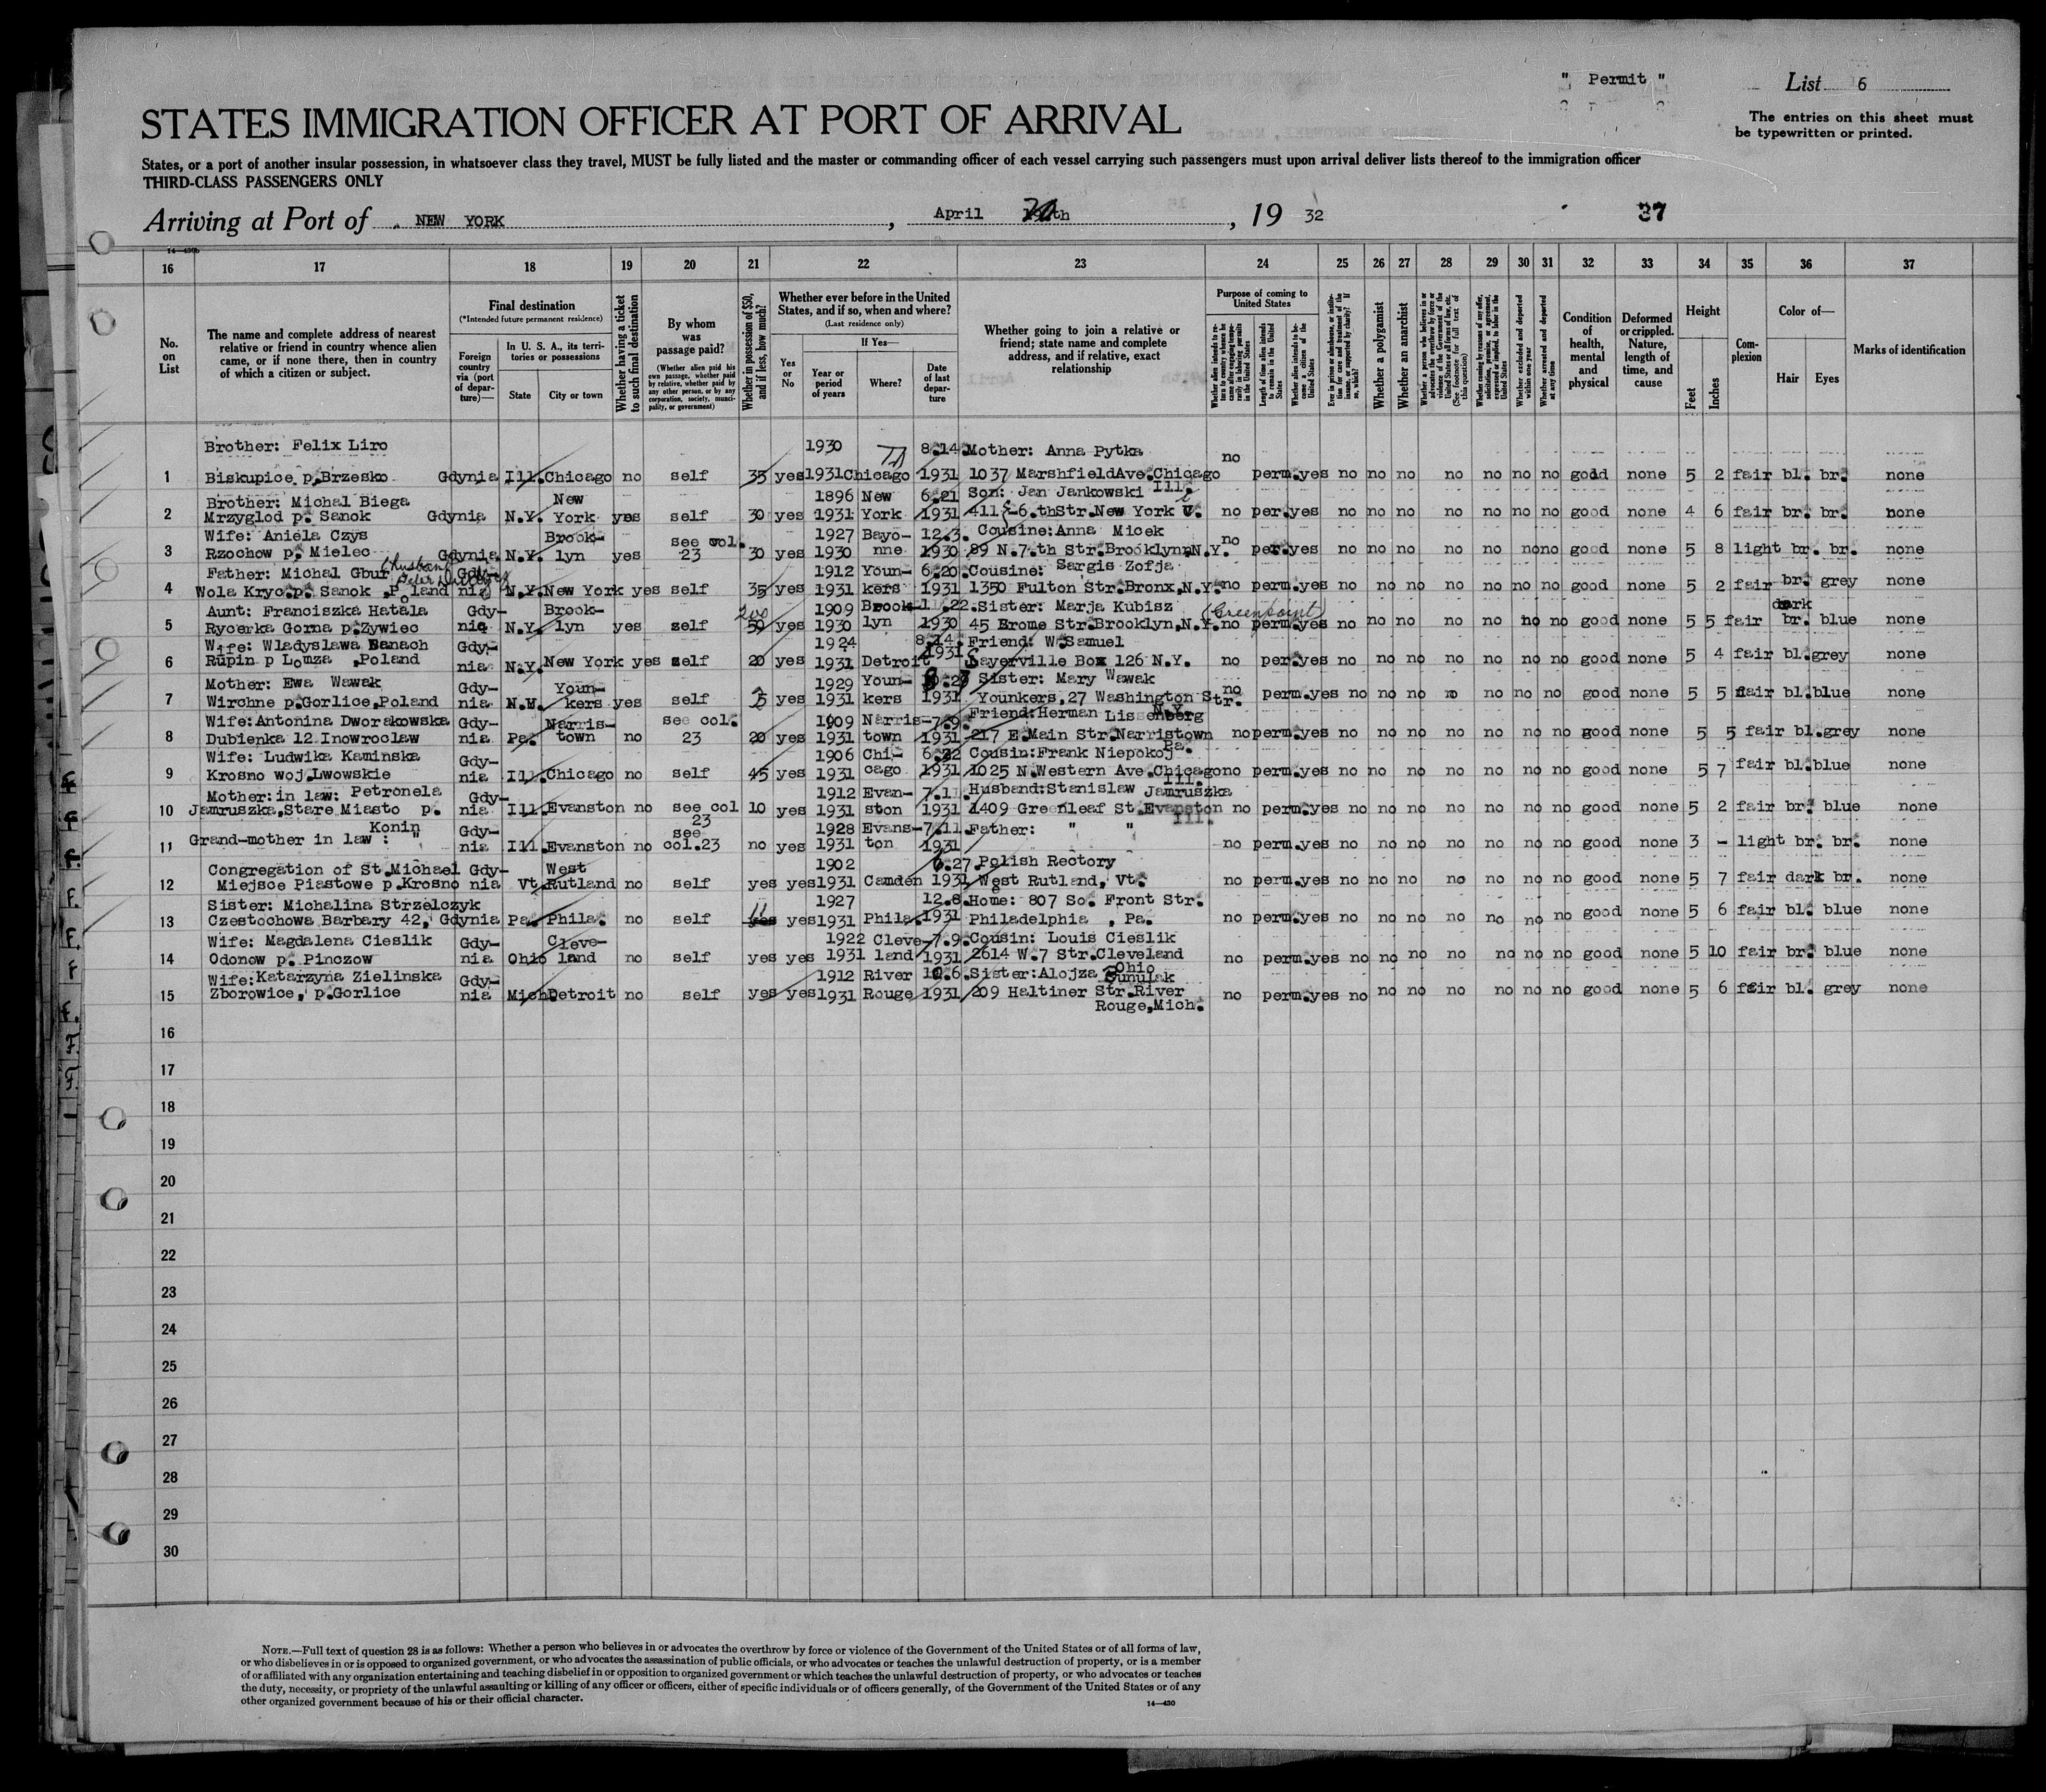 " Permit "
List 6
STATES IMMIGRATION OFFICER AT PORT OF ARRIVAL
The entries on this sheet must
be typewritten or printed.
States, or a port of another insular possession, in whatsoever class they travel, MUST be fully listed and the master or commanding officer of each vessel carrying such passengers must upon arrival deliver lists thereof to the immigration officer
THIRD-CLASS PASSENGERS ONLY
Arriving at Port of NEW YORK, April 20th, 19 32
37
16 17 18 19 20 21 22 23 24 25 26 27 28 29 30 31 32 33 34 35 36 37
No. on List
The name and complete address of nearest relative or friend in country whence alien came, or if none there, then in country of which a citizen or subject.
Final destination
(*Intended future permanent residence)
Foreign country via (port of departure)—
In U. S. A., its territories or possessions
State
City or town
Whether having a ticket to such final destination
By whom was passage paid?
(Whether alien paid his own passage, whether paid by relative, whether paid by any other person, or by any corporation, society, municipality, or government)
Whether in possession of $50, and if less, how much?
Whether ever before in the United States, and if so, when and where?
(Last residence only)
Yes or No
If Yes—
Year or period of years
Where?
Date of last departure
Whether going to join a relative or friend; state name and complete address, and if relative, exact relationship
Purpose of coming to United States
Length of time alien intends to remain in the United States
Whether alien intends to become a citizen of the United States
Whether a polygamist
Whether an anarchist
Whether excluded and deported within one year
Whether arrested and deported at any time
Condition of health, mental and physical
Deformed or crippled. Nature, length of time, and cause
Height
Feet
Inches
Complexion
Color of—
Hair
Eyes
Marks of identification
Brother: Felix Liro 1930 8.14. Mother: Anna Pytka no
1 Biskupice p.Brzesko Gdynia Ill. Chicago no self 35 yes 1931 Chicago 1931 1037 MarshfieldAve.Chicago perm. yes no no no no no no no good none 5 2 fair bl. br. none
Brother: Michal Biega New 1896 New 6.21 Son: Jan Jankowski Ill.
2 Mrzyglod p. Sanok Gdynia N.Y. York yes self 30 yes 1931 York 1931 411 -6.thStr.New York no per. yes no no no no no no no good none 4 6 fair br. br. none
Wife: Aniela Czys Brook- see col. 1927 Bayo- 12.3. Cousine: Anna Micek no
3 Rzochow p. Mielec Gdynia N.Y. lyn yes 23 30 yes 1930 nne 1930 89 N.7.th Str.Brooklyn,N.Y. per. yes no no no no no no no good none 5 8 light br. br. none
Father: Michal Gbur (husband Gdy- 1912 Youn- 6.20. Cousine: Sargis Zofja
4 Wola Kryc.p. Sanok ,Poland nia N.Y. New York yes self 35 yes 1931 kers 1931 1350 Fulton Str.Bronx,N.Y. no perm. yes no no no no no no no good none 5 2 fair br. grey none
Aunt: Franciszka Hatala Gdy- Brook- 200 1909 Brook- 1.22. Sister: Marja Kubisz (Greenpoint) dark
5 Rycerka Gorna p.Zywiec nia N.Y. lyn yes self 50 yes 1930 lyn 1930 45 Erome Str.Brooklyn,N.Y. no perm. yes no no no no no no no good none 5 5 fair br. blue none
Wife: Wladyslawa Banach Gdy- 1924 8.14. Friend: W.Samuel
6 Rupin p Lomza ,Poland nia N.Y. New York yes self 20 yes 1931 Detroit 1931 Sayerville Box 126 N.Y. no per. yes no no no no no no no good none 5 4 fair bl. grey none
Mother: Ewa Wawak Gdy- Youn- 1929 Youn- Sister: Mary Wawak no
7 Wirchne p.Gorlice,Poland nia kers yes self 5 yes 1931 kers 1931 Younkers,27 Washington Str. perm. yes no no no no no no no good none 5 5 fair bl. blue none
Wife: Antonina Dworakowska Gdy- Narris- see col. 1909 Narris- 7.9. Friend: Herman Lissenberg N.Y.
8 Dubienka 12 Inowroclaw nia Pa. town no 23 20 yes 1931 town 1931 217 E.Main Str.Narristown no perm. yes no no no no no no no good none 5 5 fair bl. grey none
Wife: Ludwika Kaminska Gdy- 1906 Chi- 6.22 Cousin: Frank Niepokoj Pa.
9 Krosno woj.Lwowskie nia Ill. Chicago no self 45 yes 1931 cago 1931 1025 N.Western Ave.Chicago no perm. yes no no no no no no no good none 5 7 fair bl. blue none
Mother: in law: Petronela Gdy- 1912 Evan- 7.11. Husband: Stanislaw Jamruszka Ill.
10 Jamruszka,Stare Miasto p. nia Ill. Evanston no see col 23 10 yes 1931 ston 1931 1409 Greenleaf St.Evanston no perm. yes no no no no no no no good none 5 2 fair br. blue none
Konin Gdy- see 1928 Evans- 7.11. Father: " " Ill.
11 Grand-mother in law : " nia Ill. Evanston no col.23 no yes 1931 ton 1931 no perm. yes no no no no no no no good none 3 - light br. br. none
Congregation of St.Michael Gdy- West 1902 6.27. Polish Rectory
12 Miejsce Piastowe p.Krosno nia Vt. Rutland no self yes yes 1931 Camden 1931 West Rutland, Vt. no perm. yes no no no no no no no good none 5 7 fair dark br. none
Sister: Michalina Strzelczyk 1927 12.8. Home: 807 So. Front Str.
13 Czestochowa Barbary 42, Gdynia Pa. Phila. no self yes yes 1931 Phila. 1931 Philadelphia , Pa. no perm. yes no no no no no no no good none 5 6 fair bl. blue none
Wife: Magdalena Cieslik Gdy- Cleve- 1922 Cleve- 7.9. Cousin: Louis Cieslik
14 Odonow p. Pinczow nia Ohio land no self yes yes 1931 land 1931 2614 W.7 Str.Cleveland no perm. yes no no no no no no no good none 5 10 fair br. blue none
Wife: Katarzyna Zielinska Gdy- 1912 River 10.6. Sister: Alojza Ohio
15 Zborowice, p.Gorlice nia Mich. Detroit no self yes yes 1931 Rouge 1931 209 Haltiner Str.River no perm. yes no no no no no no no good none 5 6 fair bl. grey none
Rouge,Mich.
16
17
18
19
20
21
22
23
24
25
26
27
28
29
30
NOTE.—Full text of question 28 is as follows: Whether a person who believes in or advocates the overthrow by force or violence of the Government of the United States or of all forms of law,
or who disbelieves in or is opposed to organized government, or who advocates the assassination of public officials, or who advocates or teaches the unlawful destruction of property, or is a member
of or affiliated with any organization entertaining and teaching disbelief in or opposition to organized government or which teaches the unlawful destruction of property, or who advocates or teaches
the duty, necessity, or propriety of the unlawful assaulting or killing of any officer or officers, either of specific individuals or of officers generally, of the Government of the United States or of any
other organized government because of his or their official character.
14—430